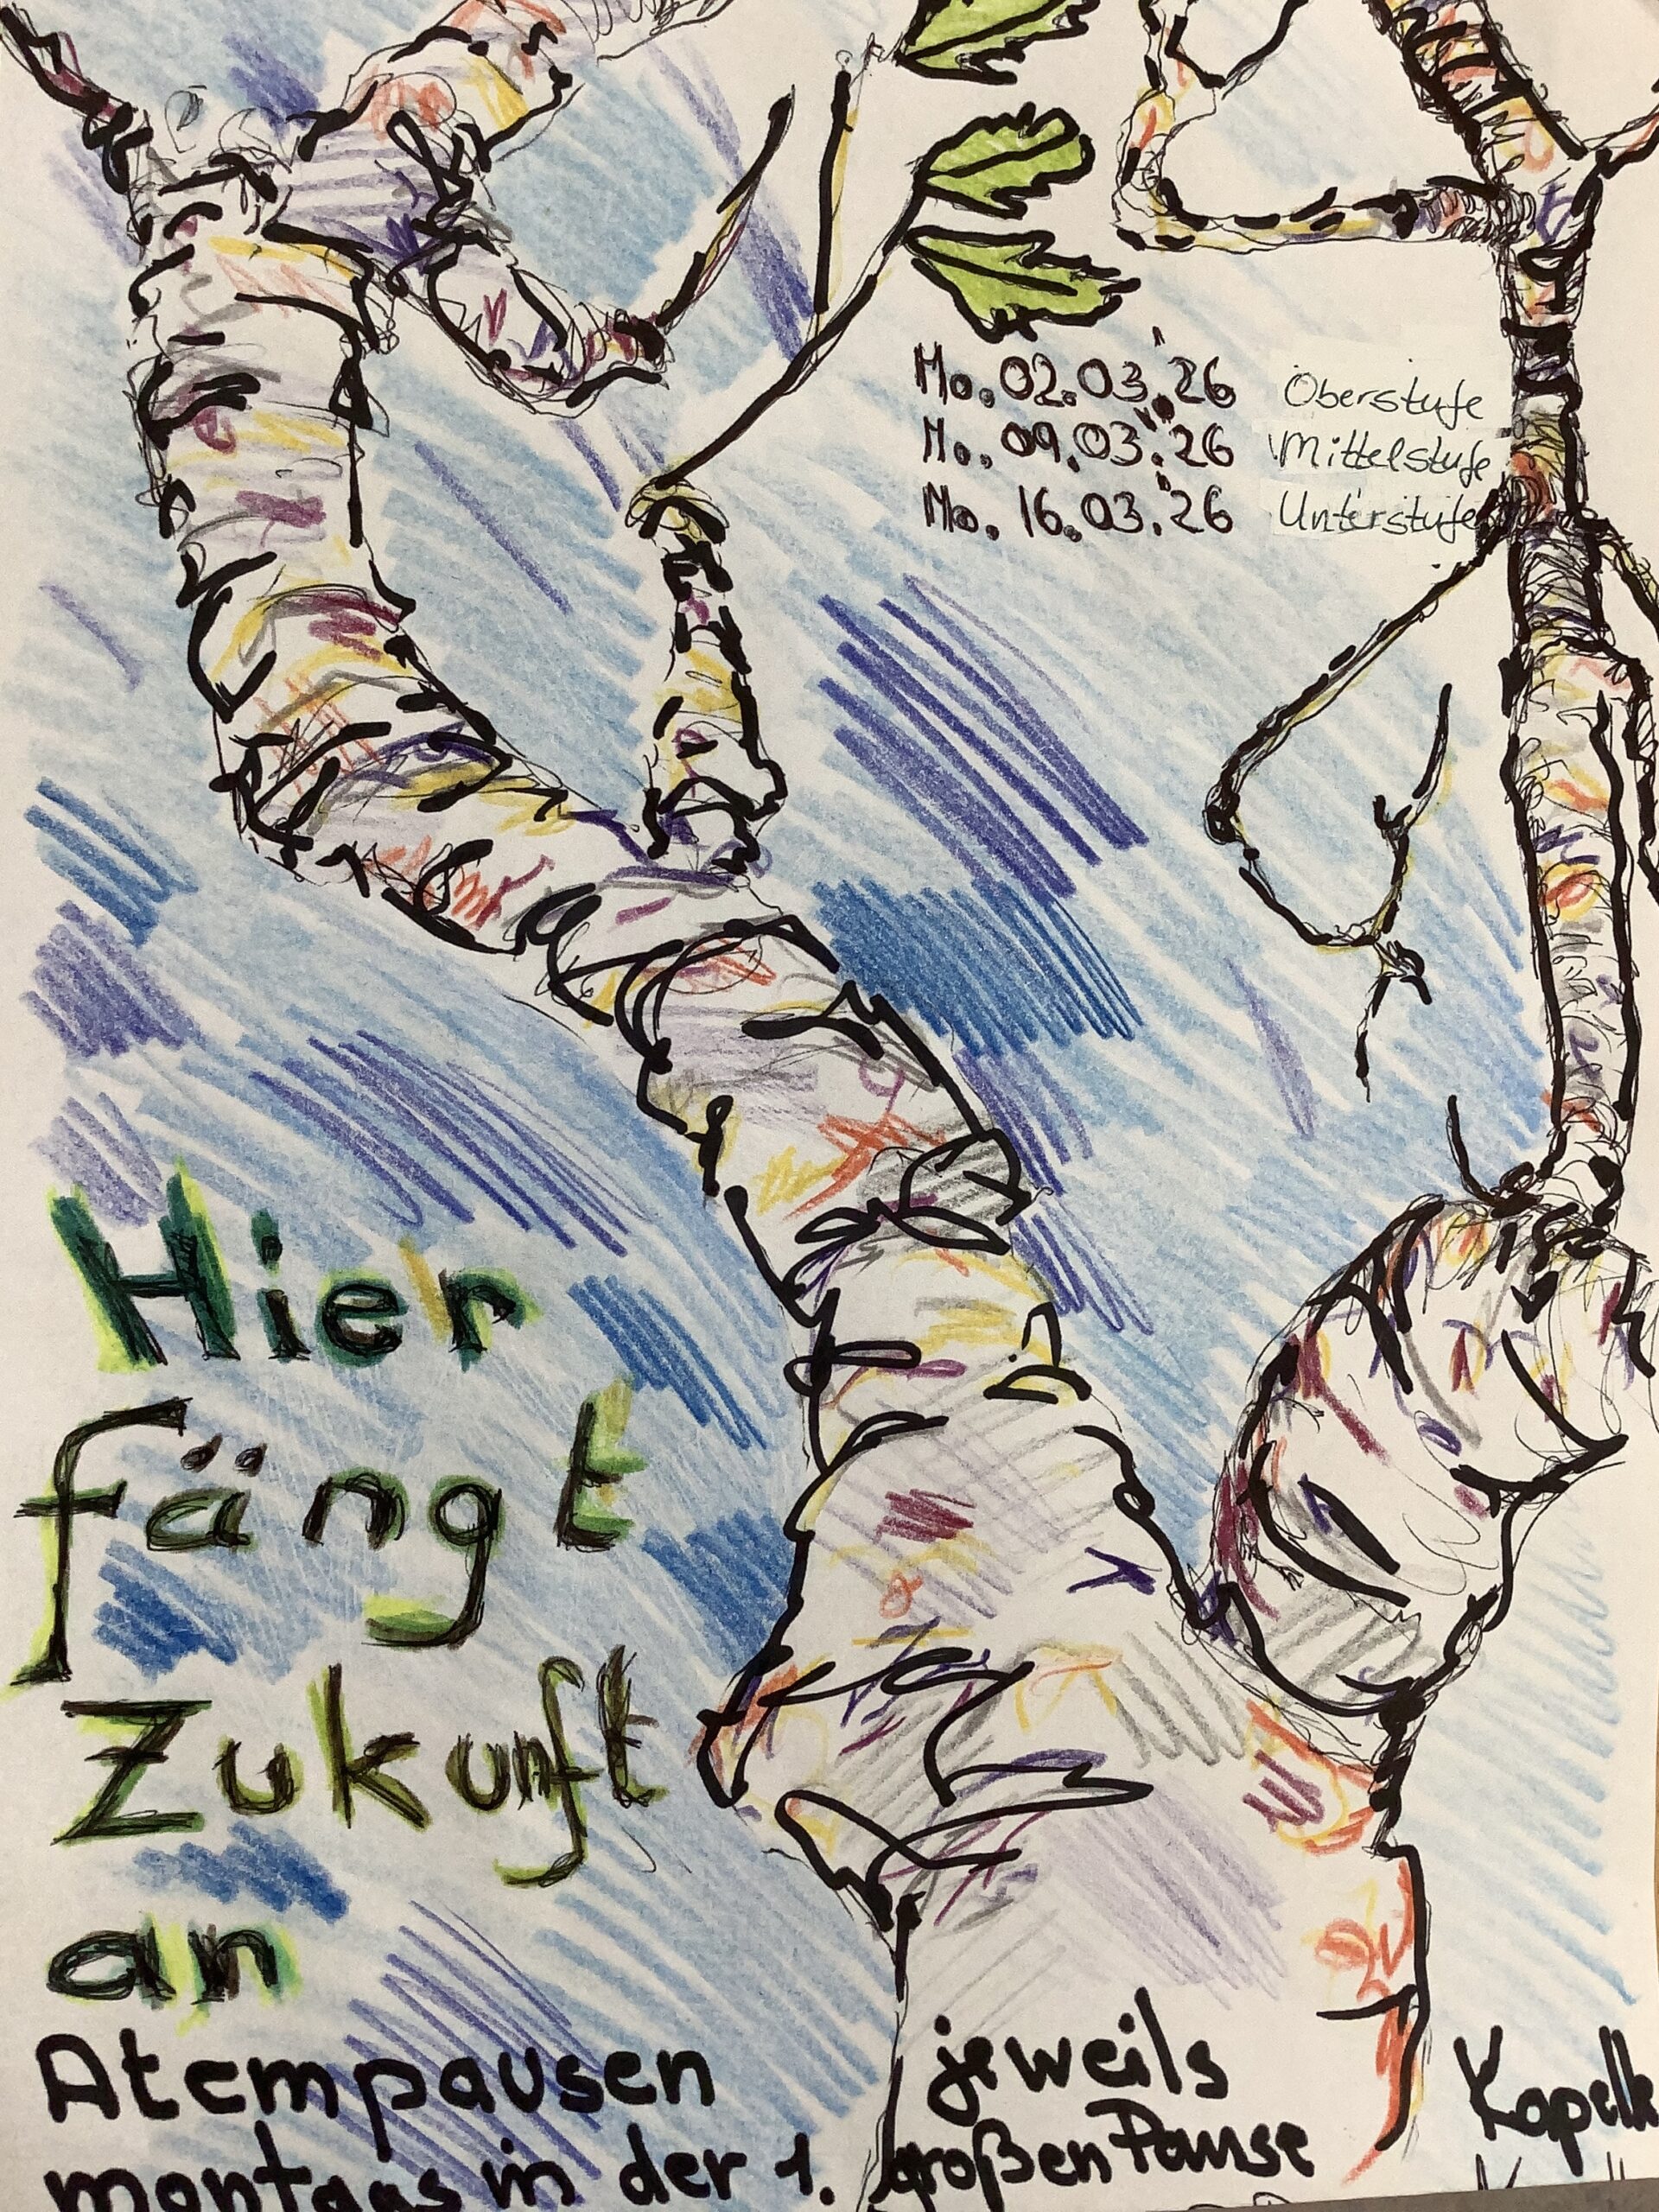 Mo. 02.03.'26 Oberstufe
Mo. 09.03.'26 Mittelstufe
Mo. 16.03.'26 Unterstufe
Hier
fängt
Zukunft
an
Atempausen jeweils
montags in der 1. großen Pause
Kapelle